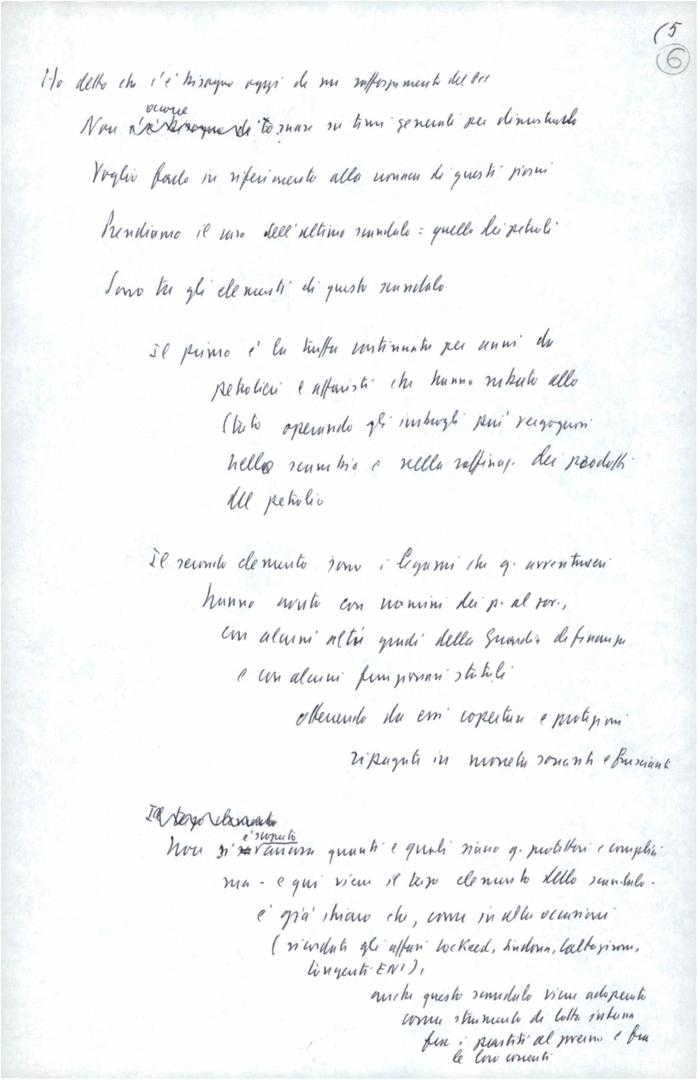 (5
6
Ho detto che c'è bisogno oggi di un rafforzamento del Pci
occorre
Non c'è bisogno di tornare su temi generali per dimostrarlo
Voglio farlo in riferimento alla cronaca di questi giorni
Prendiamo il caso dell'ultimo scandalo: quello dei petroli
Sono tre gli elementi di questo scandalo
Il primo è la truffa continuata per anni da
petrolieri e affaristi che hanno rubato allo
Stato operando gli imbrogli più vergognosi
nello scambio e nella raffinaz. dei prodotti
del petrolio
Il secondo elemento sono i legami che q. avventurieri
hanno avuto con uomini dei p. al gov.,
con alcuni alti gradi della Guardia di finanza
e con alcuni funzionari statali
ottenendo da essi coperture e protezioni
ripagate in moneta sonante e frusciante
Il terzo elemento
è scoperto
Non si è ancora quanti e quali siano q. protettori e complici
ma - e qui viene il terzo elemento dello scandalo -
è già chiaro che, come in altre occasioni
(ricordate gli affari Lockeed, Sindona, Caltagirone,
tangenti-ENI),
anche questo scandalo viene adoperato
come strumento di lotta interna
fra i partiti al governo e fra
le loro correnti